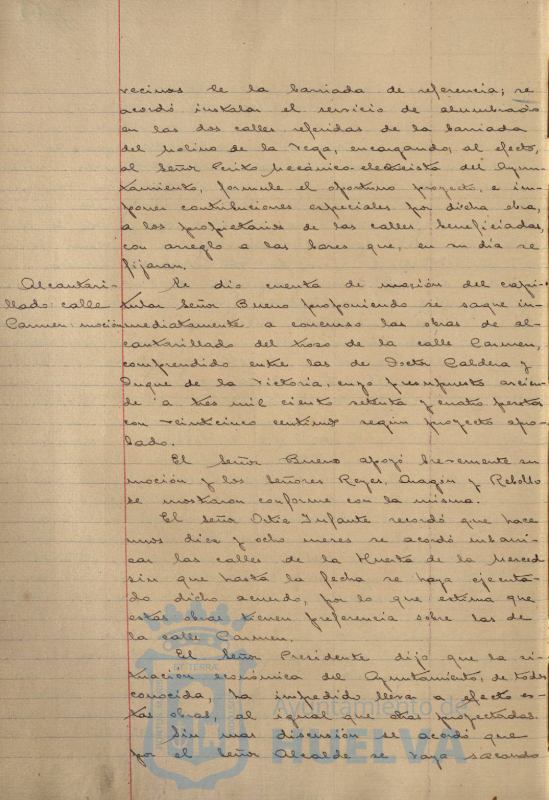 vecinos de la barriada de referencia; se
acordó instalar el servicio de alumbrado
en las dos calles referidas de la barriada
del Molino de la Vega, encargando, al efecto,
al Señor Perito Mecánico-electricista del Ayun-
tamiento, formule el oportuno proyecto, e im-
poner contribuciones especiales por dicha obra,
a los propietarios de las calles beneficiadas,
con arreglo a las bases que, en su dia se
fijaran.
Alcantari-
llado: calle
Carmen: moción
Se dio cuenta de moción del capi-
tular Señor Bueno proponiendo se saque in-
mediatamente a concurso las obras de al-
cantarillado del trozo de la calle Carmen,
comprendido entre las de Doctor Caldera y
Duque de la Victoria, cuyo presupuesto ascien-
de a tres mil ciento setenta y cuatro pesetas
con veinticinco centimos según proyecto apro-
bado.
El Señor Bueno apoyó brevemente su
moción y los Señores Reyes, Aragón y Rebollo
se mostraron conforme con la misma.
El Señor Ortiz Infante recordó que hace
unos diez y ocho meses se acordó urbani-
zar las calles de la Huerta de la Merced
sin que hasta la fecha se haya ejecuta-
do dicho acuerdo, por lo que estima que
estas obras tienen preferencia sobre las de
la calle Carmen.
El Señor Presidente dijo que la si-
tuación económica del Ayuntamiento, de todos
conocida, ha impedido llevar a efecto es-
tas obras, al igual que otras proyectadas.
Sin mas discusión se acordó que
por el Señor Alcalde se vaya sacando
Ayuntamiento de
HUELVA